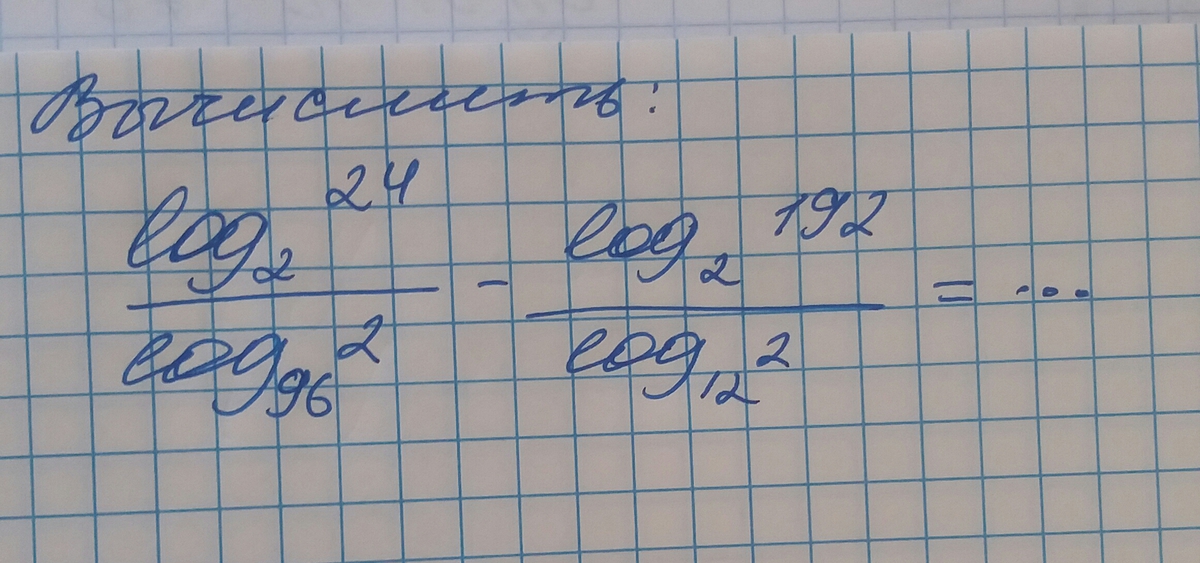 Вычислить:
log₂ 24 / log₉₆ 2 - log₂ 192 / log₁₂ 2 = ...